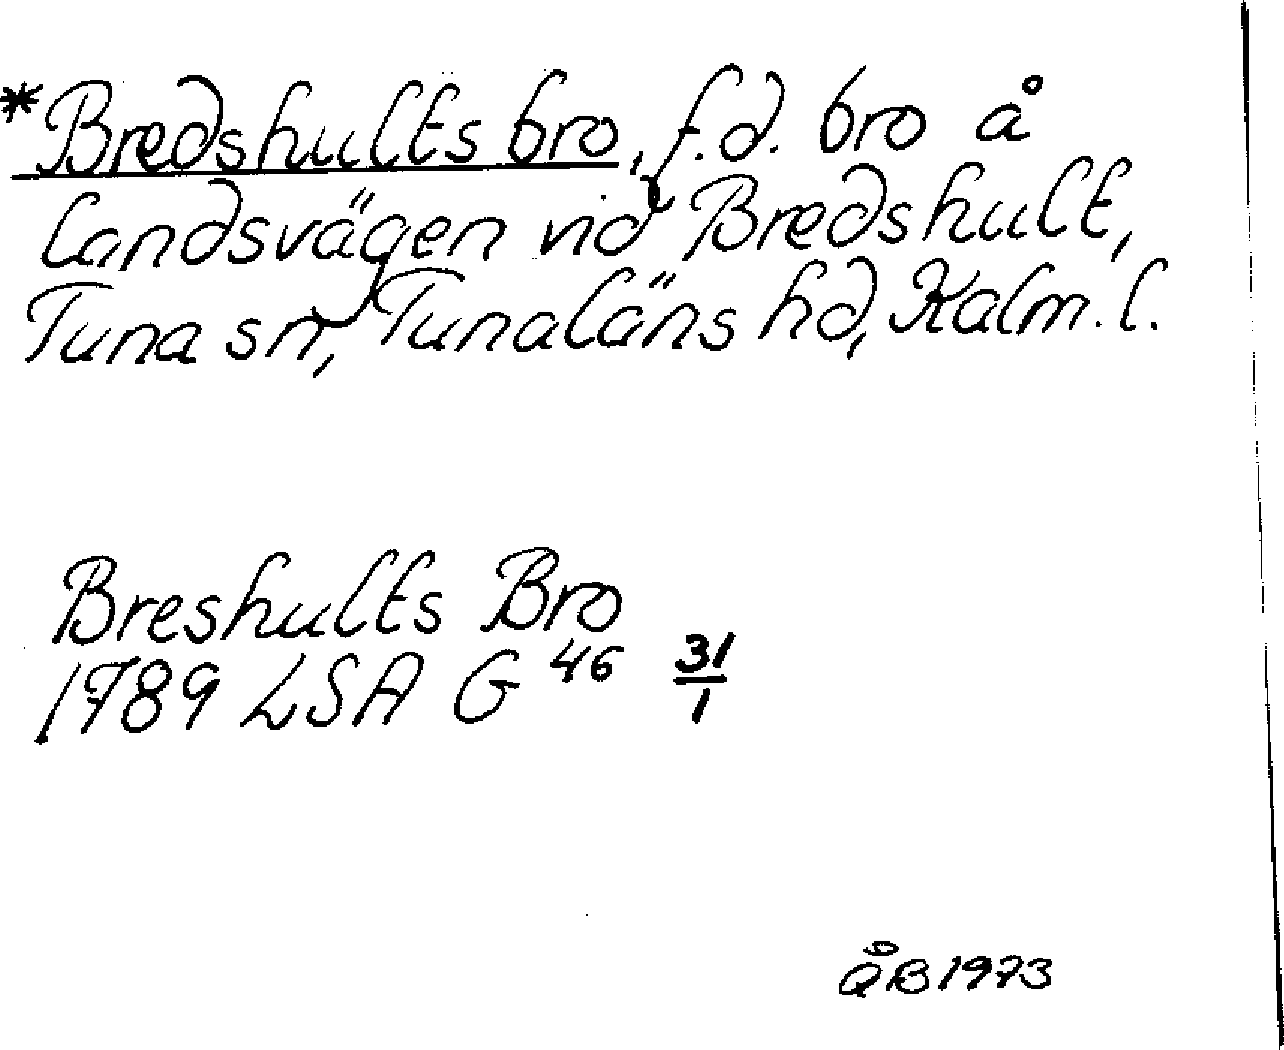 *Bredshults bro, f.d. bro å
landsvägen vid Bredshult,
Tuna sn, Tunaläns hd, Kalm. l.
Breshults Bro
1789 LSA G 46 31/1
ÅB 1973